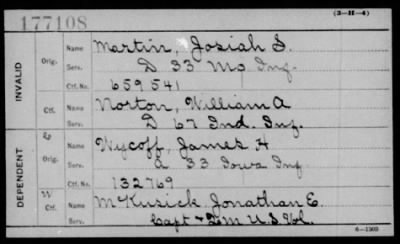 (3-H-4)
177108
INVALID
Orig.
Name Martin, Josiah S.
Serv. D 33 Mo Inf.
Ctf. No. 659541
Ctf.
Name Norton, William A
Serv. D 67 Ind. Inf.
DEPENDENT
Orig.
Name Wycoff, James H
Serv. A 33 Iowa Inf
Ctf. No. 132769
W
Ctf.
Name McKusick, Jonathan E.
Serv. Capt + 2 M U.S. Vol.
6-1509